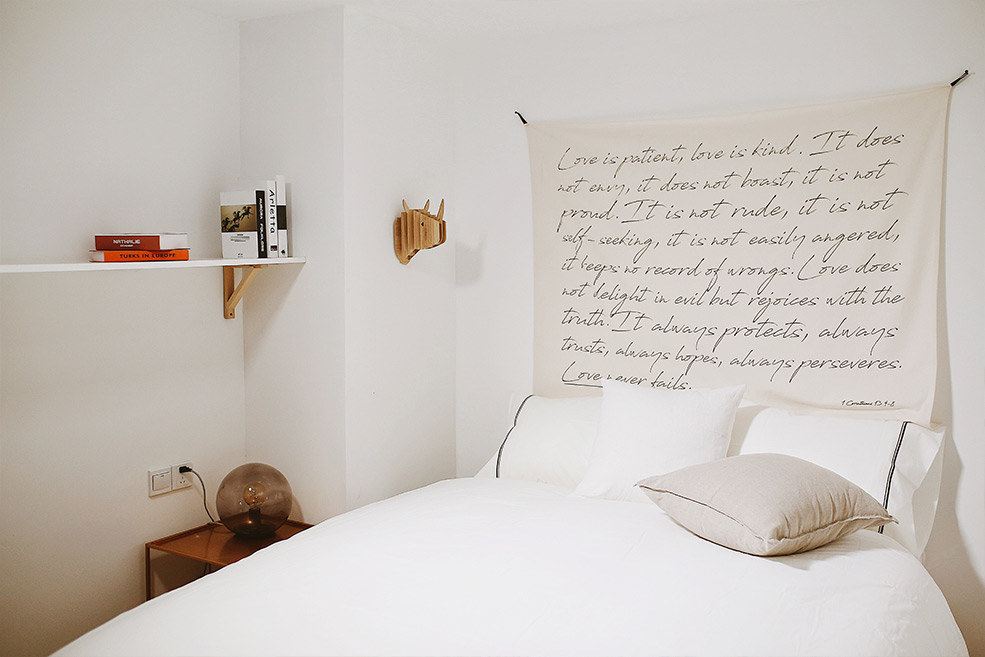 Love is patient, love is kind. It does
not envy, it does not boast, it is not
proud. It is not rude, it is not
self-seeking, it is not easily angered,
it keeps no record of wrongs. Love does
not delight in evil but rejoices with the
truth. It always protects, always
trusts, always hopes, always perseveres.
Love never fails.
1 Corinthians 13:4-8
NATHALIE
TURKS IN EUROPE
Arletta